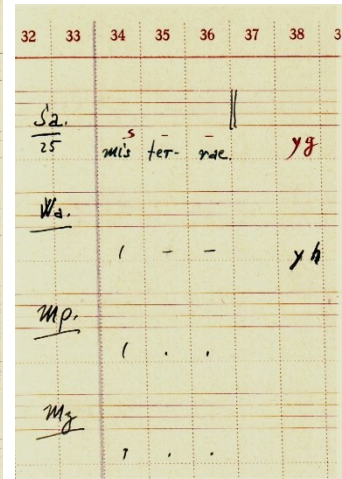 32 33 34 35 36 37 38 3
Sa.
25
s
mis ter- rae. yg
Wa.
yh
Mp.
Mz